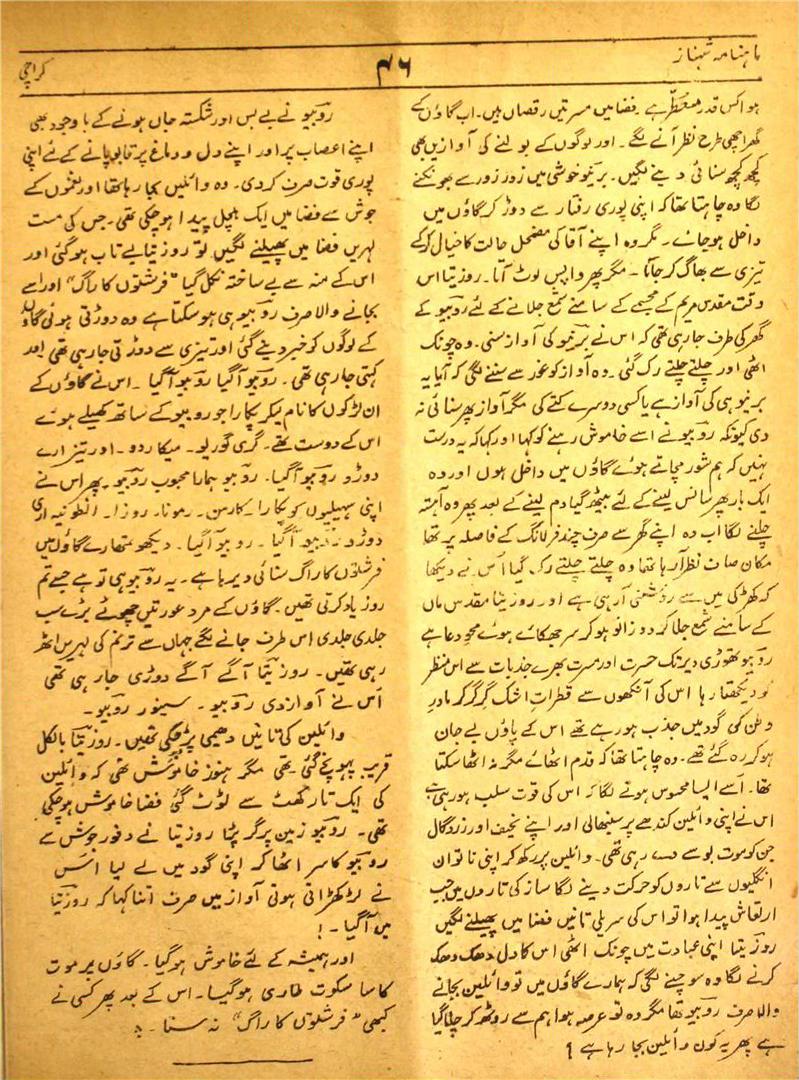 ماہنامہ شہناز
۴۶
کراچی
ہوا کس قدر معطر ہے۔ فضا میں مسرتیں رقصاں ہیں۔ اب گاؤں کے
گھر اچھی طرح نظر آنے لگے۔ اور لوگوں کے بولنے کی آوازیں بھی
کچھ کچھ سنائی دینے لگیں۔ برنیو خوشی میں زور زور سے بھونکنے
لگا وہ چاہتا تھا کہ اپنی پوری رفتار سے دوڑ کر گاؤں میں
داخل ہو جائے۔ مگر وہ اپنے آقا کی مضمحل حالت کا خیال کر کے
تیزی سے بھاگ کر جاتا۔ مگر پھر واپس لوٹ آتا۔ روزیتا اس
وقت مقدس مریم کے مجسمے کے سامنے شمع جلانے کے لئے روبیو کے
گھر کی طرف جا رہی تھی کہ اس نے برنیو کی آواز سنی۔ وہ چونک
اٹھی اور چلتے چلتے رک گئی۔ وہ آواز کو غور سے سننے لگی کہ آیا یہ
برنیو ہی کی آواز ہے یا کسی دوسرے کتے کی مگر آواز پھر سنائی نہ
دی کیونکہ روبیو نے اسے خاموش رہنے کو کہا اور کہا کہ یہ درست
نہیں کہ ہم شور مچاتے ہوئے گاؤں میں داخل ہوں اور وہ
ایک بار پھر سانس لینے کے لئے بیٹھ گیا دم لینے کے بعد پھر وہ آہستہ
چلنے لگا اب وہ اپنے گھر سے صرف چند فرلانگ کے فاصلہ پر تھا
مکان صاف نظر آ رہا تھا وہ چلتے چلتے رک گیا اس نے دیکھا
کہ کھڑکی میں سے روشنی آ رہی ہے اور روزیتا مقدس ماں
کے سامنے شمع جلا کر دو زانو ہو کر سر جھکائے ہوئے محو دعا ہے
روبیو تھوڑی دیر تک حسرت اور مسرت بھرے جذبات سے اس منظر
کو دیکھتا رہا اس کی آنکھوں سے قطرات اشک گر گر کر مادرِ
وطن کی گود میں جذب ہو رہے تھے اس کے پاؤں بے جان
ہو کر رہ گئے تھے۔ وہ چاہتا تھا کہ قدم اٹھائے مگر نہ اٹھا سکتا
تھا۔ اُسے ایسا محسوس ہونے لگا کہ اس کی قوت سلب ہو رہی ہے
اس نے اپنی وائلین کندھے پر سنبھالی اور اپنے نحیف اور زرد گال
جن کو موت بوسے دے رہی تھی۔ وائلین پر رکھ کر اپنی ناتواں
انگلیوں سے تاروں کو حرکت دینے لگا ساز کی تاروں میں جب
ارتعاش پیدا ہوا تو اس کی سریلی تانیں فضا میں پھیلنے لگیں
روزیتا اپنی عبادت میں چونک اٹھی اس کا دل دھک دھک
کرنے لگا وہ سوچنے لگی کہ ہمارے گاؤں میں تو وائلین بجانے
والا صرف روبیو تھا مگر وہ تو عرصہ ہوا ہم سے روٹھ کر چلا گیا
ہے پھر یہ کون وائلین بجا رہا ہے ؟
روبیو نے بے بس اور شکستہ جاں ہونے کے باوجود بھی
اپنے اعصاب پر اور اپنے دل و دماغ پر قابو پانے کے لئے اپنی
پوری قوت صرف کر دی۔ وہ وائلین بجا رہا تھا اور نغموں کے
جوش سے فضا میں ایک ہلچل پیدا ہو چکی تھی۔ جس کی مست
لہریں فضا میں پھیلنے لگیں تو روزیتا بے تاب ہو گئی اور
اس کے منہ سے بے ساختہ نکل گیا "فرشتوں کا راگ" اور اسے
بجانے والا صرف روبیو ہی ہو سکتا ہے وہ دوڑتی ہوئی گاؤں
کے لوگوں کو خبر دینے گئی اور تیزی سے دوڑتی جا رہی تھی اور
کہتی جا رہی تھی۔ روبیو آ گیا روبیو آ گیا۔ اس نے گاؤں کے
ان لڑکوں کا نام لیکر پکارا جو روبیو کے ساتھ کھیلے ہوئے
اس کے دوست تھے۔ گری گوریو۔ میکارڈو۔ اور تیزارے
دوڑو روبیو آ گیا۔ روبیو ہمارا محبوب روبیو۔ پھر اس نے
اپنی سہیلیوں کو پکارا۔ کارمن۔ رمونا۔ روزا۔ انطونیہ اری
دوڑو روبیو آ گیا۔ روبیو آ گیا۔ دیکھو تمہارے گاؤں میں
فرشتوں کا راگ سنائی دے رہا ہے۔ یہ روبیو ہی تو ہے جسے تم
روز یاد کرتی تھیں۔ گاؤں کے مرد عورتیں چھوٹے بڑے سب
جلدی جلدی اس طرف جانے لگے جہاں سے ترنم کی لہریں اٹھ
رہی تھیں۔ روزیتا آگے آگے دوڑی جا رہی تھی
اُس نے آواز دی روبیو۔ سینور روبیو۔
وائلین کی تانیں دھیمی پڑ چکی تھیں۔ روزیتا بالکل
قریب پہونچ گئی تھی مگر ہنوز خاموش تھی کہ وائلین
کی ایک تار کھٹ سے ٹوٹ گئی فضا خاموش ہو چکی
تھی۔ روبیو زمین پر گر پڑا روزیتا نے وفور جوش سے
روبیو کا سر اٹھا کر اپنی گود میں لے لیا اس
نے لڑکھڑاتی ہوئی آواز میں صرف اتنا کہا کہ روزیتا
میں آ گیا۔ !
اور ہمیشہ کے لئے خاموش ہو گیا۔ گاؤں پر موت
کا سا سکوت طاری ہو گیا۔ اس کے بعد پھر کسی نے
کبھی "فرشتوں کا راگ" نہ سنا۔